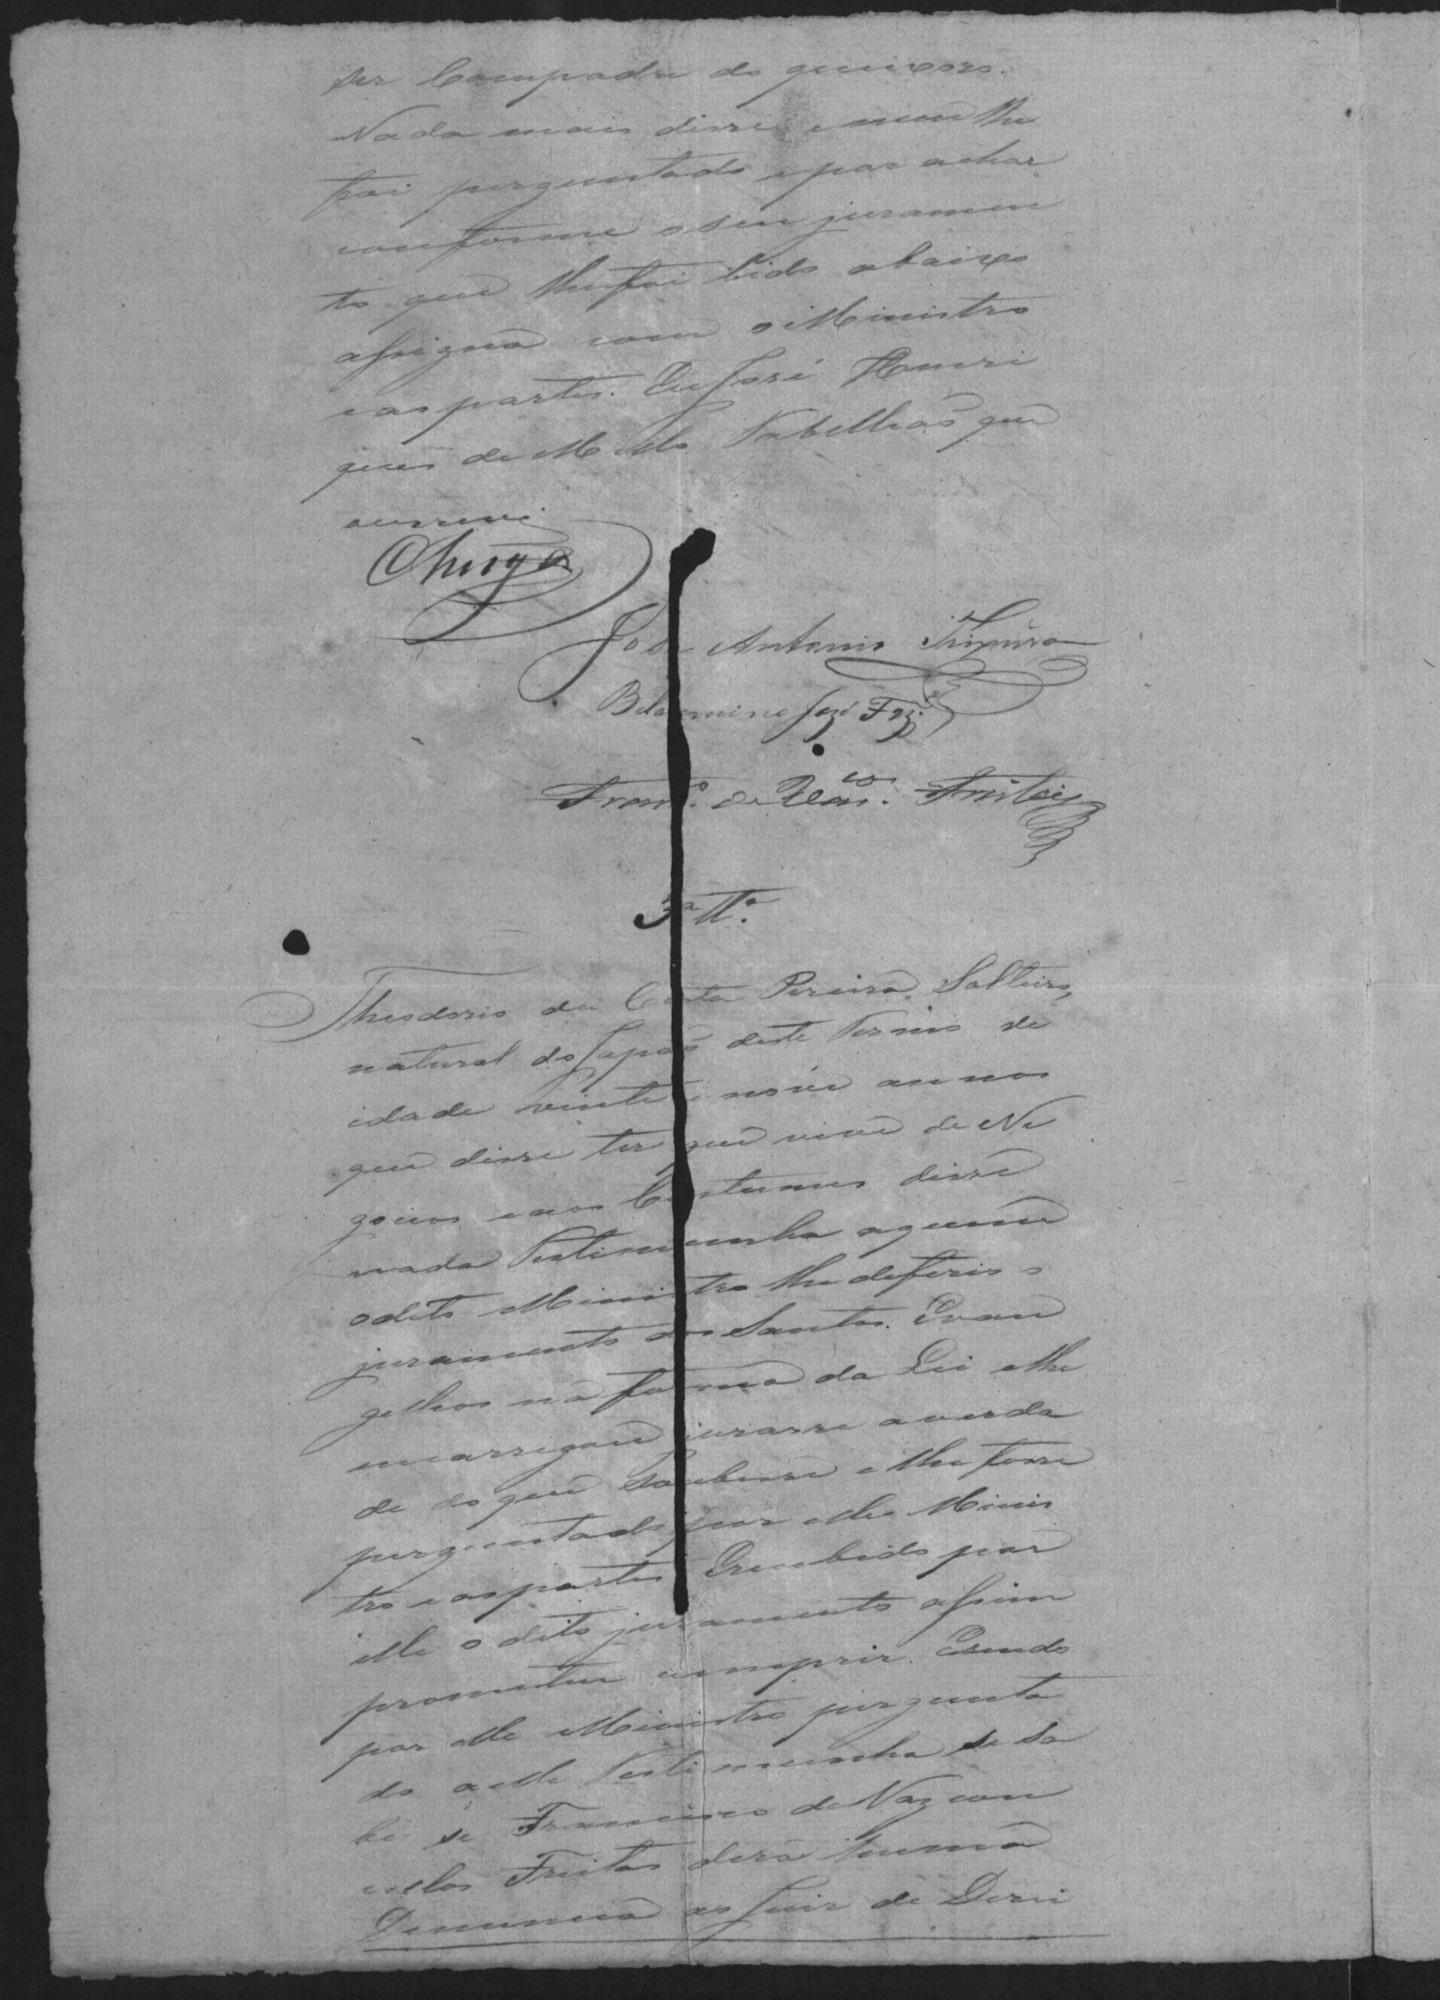 ser Compadre do queixoso.
Nada mais disse e nem lhe
foi perguntado e por achar
conforme o seu juramen
to que lhe foi lido abaixo
assigna com o Ministro
e as partes. Eu José Henri
ques de Mello Tabellião que
escrevi
José Antonio Teixeira
Belarmino José
Franco. de Vasco. Freitas
3ª Ta.
Theodorio da Costa Pereira, Solteiro,
natural do Japão deste Termo de
idade vinte e nove annos
que disse ter que vive de Ne
gocios e aos Costumes disse
nada Testemunha a quem
o dito Ministro lhe deferio o
juramento dos Santos Evan
gelhos na forma da Lei e lhe
encarregou jurasse a verda
de do que soubesse e lhe fosse
perguntado por elle Minis
tro e as partes Erecebido por
elle o dito juramento assim
prometeu cumprir. Esendo
por elle Ministro pergunta
do a elle Testemunha se sa
be se Francisco de Vazcon
cellos Freitas dera huma
Denuncia ao Juiz de Derei